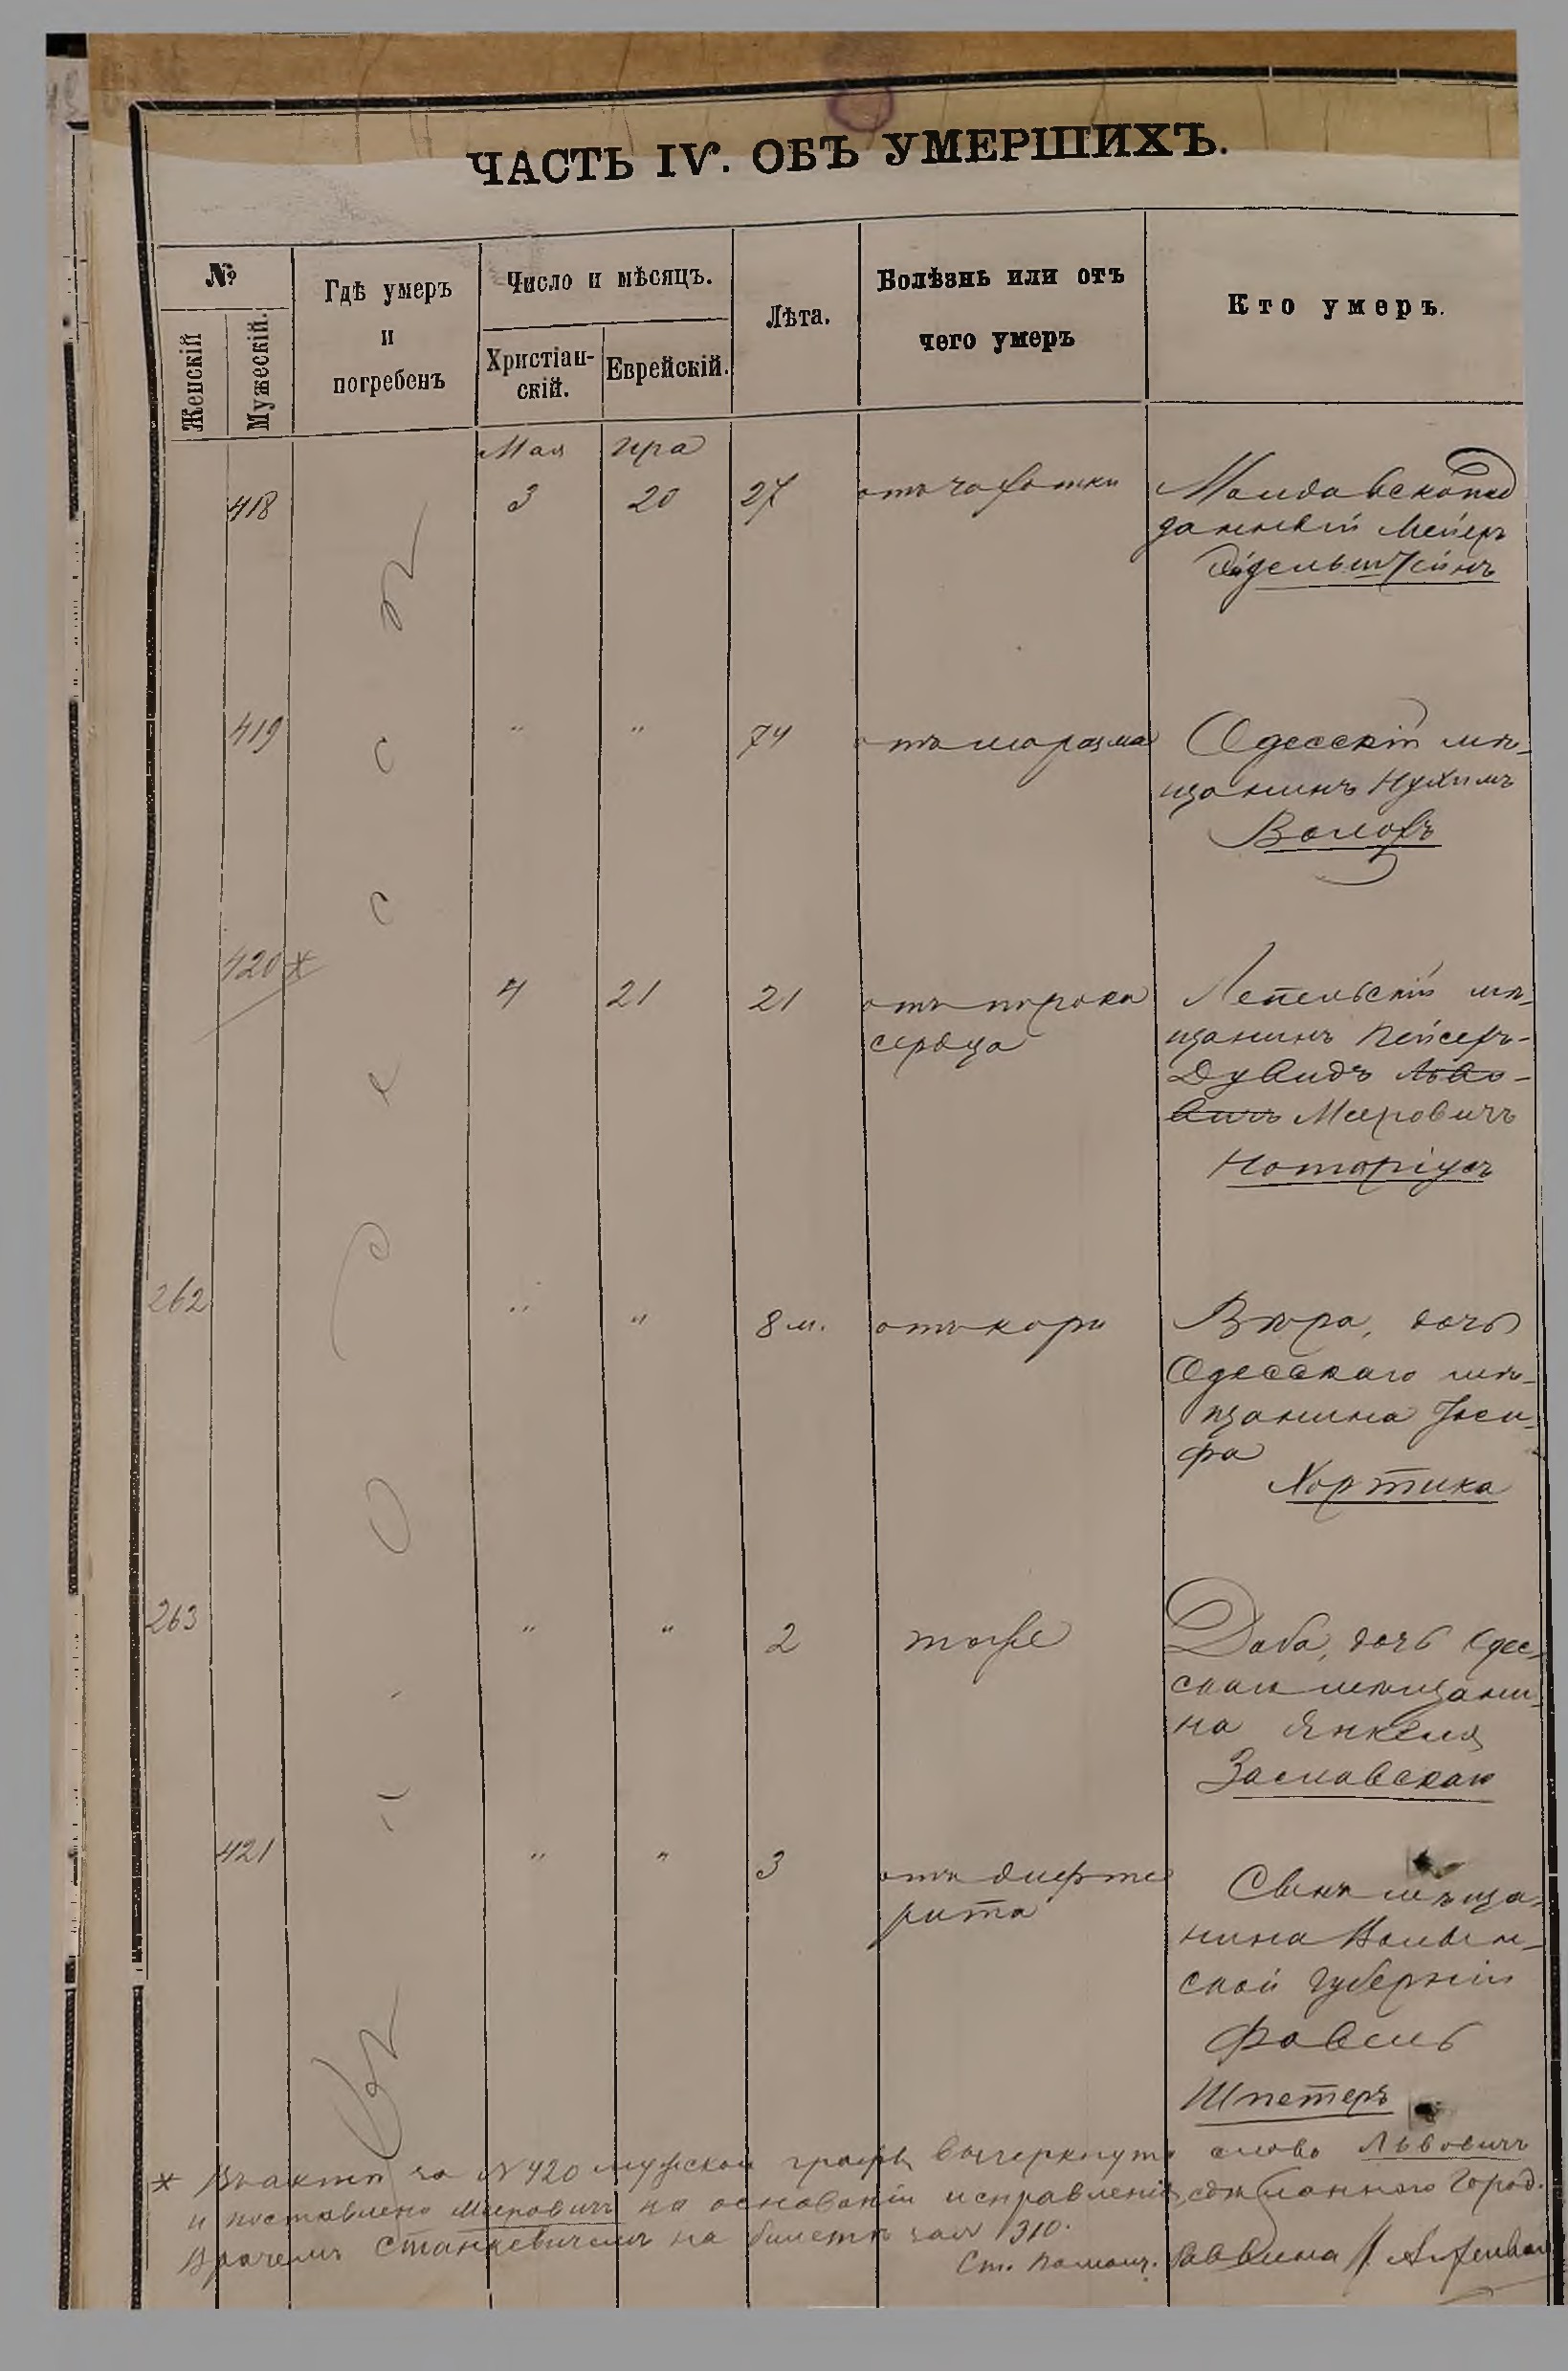 ЧАСТЬ IV. ОБЪ УМЕРШИХЪ.
№
Женскій
Мужескій.
Гдѣ умеръ
и
погребенъ
Число и мѣсяцъ.
Христіан-
скій.
Еврейскій.
Лѣта.
Болѣзнь или отъ
чего умеръ
Кто умеръ.
Мая Ира
418 3 20 27 отъ чахотки Молдавскопод
данный Мейеръ
419 " " 74 отъ маразма Одесскій мѣ-
щанинъ Нухимъ
Воловъ
420 * 4 21 21 отъ порока
сердца
Лепельскій мѣ-
щанинъ Пейсехъ-
Дувидъ Льво-
вичъ Мееровичъ
Нотаріусъ
262 " " 8 м. отъ кори Вѣра, дочь
Одесскаго мѣ-
щанина Іоси-
фа
Хортика
263 " " 2 тоже Доба, дочь Одес-
скаго мѣщани-
на Янкеля
Заславскаго
421 " " 3 отъ дифте
рита
Сынъ мѣща-
нина Волын-
ской губерніи
Файвель
Шпетеръ
въ Одессѣ
* Въ актѣ за № 420 мужской графы вычеркнуто слово Львовичъ
и поставлено Мееровичъ на основаніи исправленія, сдѣланнаго Город.
Врачемъ Станкевичемъ на билетѣ за № 1310.
Ст. Помощ. Раввина